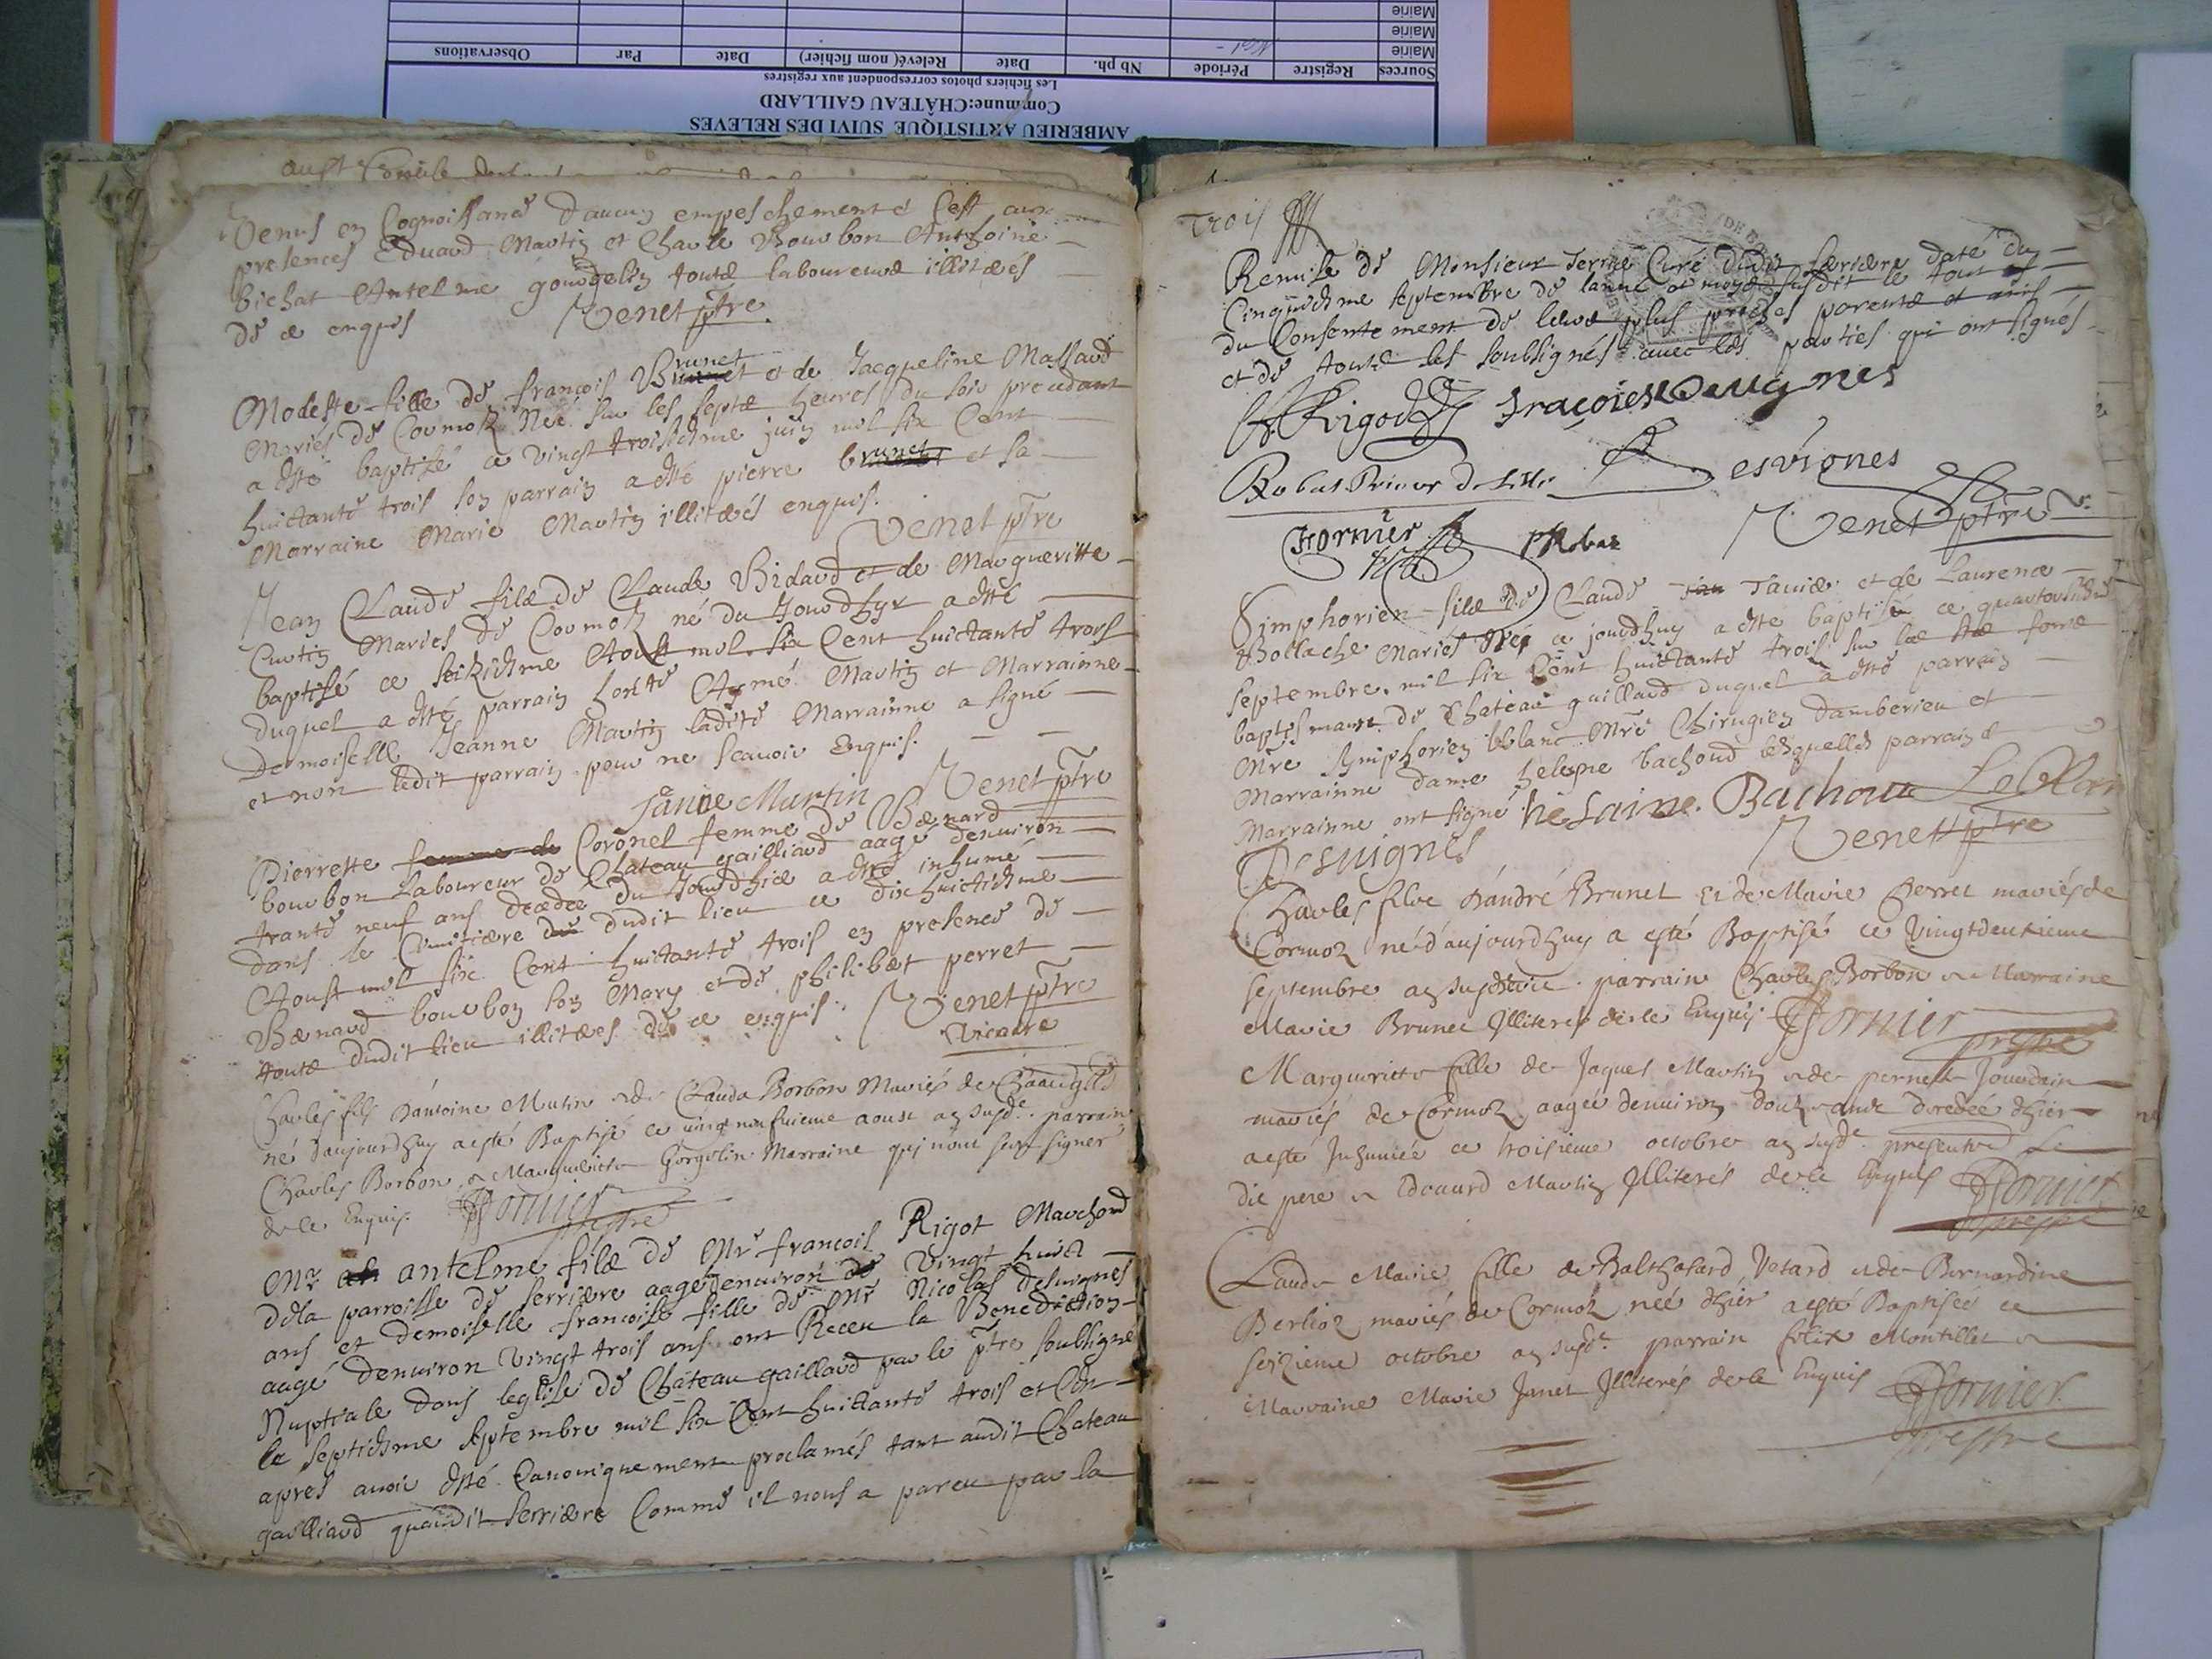 Mairie
Mairie
Mairie
Sources Registre Période Nb ph. Date Relevé( nom fichier) Date Par Observations
Les fichiers photos correspondent aux registres
Commune:CHÂTEAU GAILLARD
AMBERIEU ARTISTIQUE SUIVI DES RELEVES
Venus en Cognoissance d'aucun empeschement é C'est aux
presences Eduard Martin et Charle Bourbon Anthoine
bichat Antelme gourgelin toutz laboureurz illiterés
de ce enquis Venet ptre
Modeste fille de francois Brunet et de Jacqueline Massard
Mariés de Cormoz Née sur les septz heures du soir precedant
a esté baptisé ce vingt troisiesme juin mil six Cent
huictante trois son parrain a esté pierre brunet et sa
Marraine Marie Martin illiterés enquis.
Venet ptre
Jean Claude filz de Claude Bidard et de Margueritte
Curtin Mariés de Cormoz né du Jourdhuy a esté
baptisé ce seiziesme Aoust mil six Cent huictante trois
duquel a esté parrain honte Aymé Martin et Marrainne
Demoiselle Jeanne Martin ladite Marrainne a signé
et non ledit parrain pour ne scavoir Enquis.
Janne Martin Venet ptre
Pierrette femme de Coronel femme de Bernard
bourbon Laboureur de Chateau gailliard aagé denuiron
trante neuf ans decedee du Jourdhier a esté inhumé
dans le Cimitiere dudit lieu ce dix huictiesme
Aoust mil six Cent huictante trois en presence de
Bernard bourbon son Mary et de philibert perret
toutz dudit lieu illiteres de ce enquis. Venet ptre
Vicaire
Charles fils d'antoine Mutin et de Clauda Borbon Mariés de
né d'aujourdhuy a esté Baptisé ce vingt neufuieme aoust an susd. parrain
Charles Borbon et Margueritte Gorgelin Marraine qui n'ont sceu signer
de ce Enquis. Fornier
prestre
Mr antelme filz de Mr francois Rigot Marchand
dela parroisse de serriere aagé denuiron de Vingt huict
ans et demoiselle francoise fille de Mr Nicolas desuignes
aagé denuiron Vingt trois ans ont Receu la Benediction
Nuptiale dans leglise de Chateau gaillard par le ptre soubsigné
le septiesme septembre mil six Cent huictante trois et Con
apres auoir esté Canoniquement proclamés tant audit Chateau
gailliard quaudit serriere Comme il nous a pareu par la
Trois
Remise de Monsieur Curé dudit serriere daté du
Cinquiesme septembre de lanné et moys susdit le tout
du Consentement de leurs plus proches parents et amis
et de toutz les soubsignés avec les parties qui ont signés
Rigod fraçoise Deuignes
Robat Prieur Desvignes
Fornier P Robat Venet ptre
Simphorien filz de Claude Tauier et de Laurence
Bollache Mariés Née ce jourdhuy a esté baptisé ce quatorziesme
septembre mil six Cent huictante trois sur les
baptismaux de Chateau guillard duquel a esté parrain
Mre Simphorien leblanc Mre Chirugien damberieu et
Marrainne dame helepne bachoud lesquelles parrain et
Marrainne ont signé helaine Bachoud LeBlan
Desuignes Venet ptre
Charles filz d'andré Brunet et de Marie Perret mariés de
Cormoz né d'aujourdhuy a esté Baptisé ce Vingtdeuxieme
septembre an susd. parrain Charles Borbon et Marraine
Marie Brunet Illiteres de ce Enquis Fornier
prestre
Margueritte fille de Jaques Martin et de pernette Jourdain
mariés de Cormoz aagee denuiron douze ans decedée d'hier
a esté Inhumée ce troisieme octobre an susd. presents Le
dit pere et Edouard Martin Illiterés de ce Enquis Fornier
prestre
Claude Marie fille de Balthasard Vetard et de Bernardine
Berlioz mariés de Cormoz neé d'hier a esté Baptisée ce
seizieme octobre an susd. parrain felix Montillet et
Marraine Marie Janet Illiterés de ce Enquis Fornier
prestre